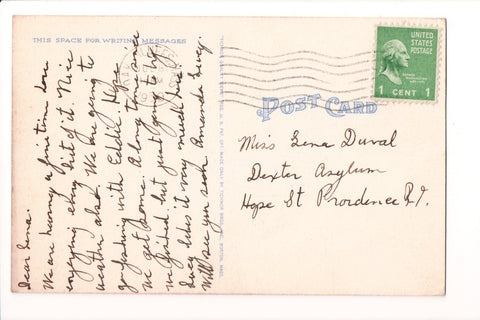 THIS SPACE FOR WRITING MESSAGES
Dear Lena.
We are having a fine time Lou
enjoying every bit of it. Nice
weather also. We are going to
go fishing with Eddie. Hope
we get some. A long time since
we fished but just going to try
Lucy likes it very much
Will see you soon Amanda Lucy.
POST CARD
UNITED STATES
POSTAGE
1 CENT 1
Miss Lena Duval
Dexter Asylum
Hope St Providence R.I.